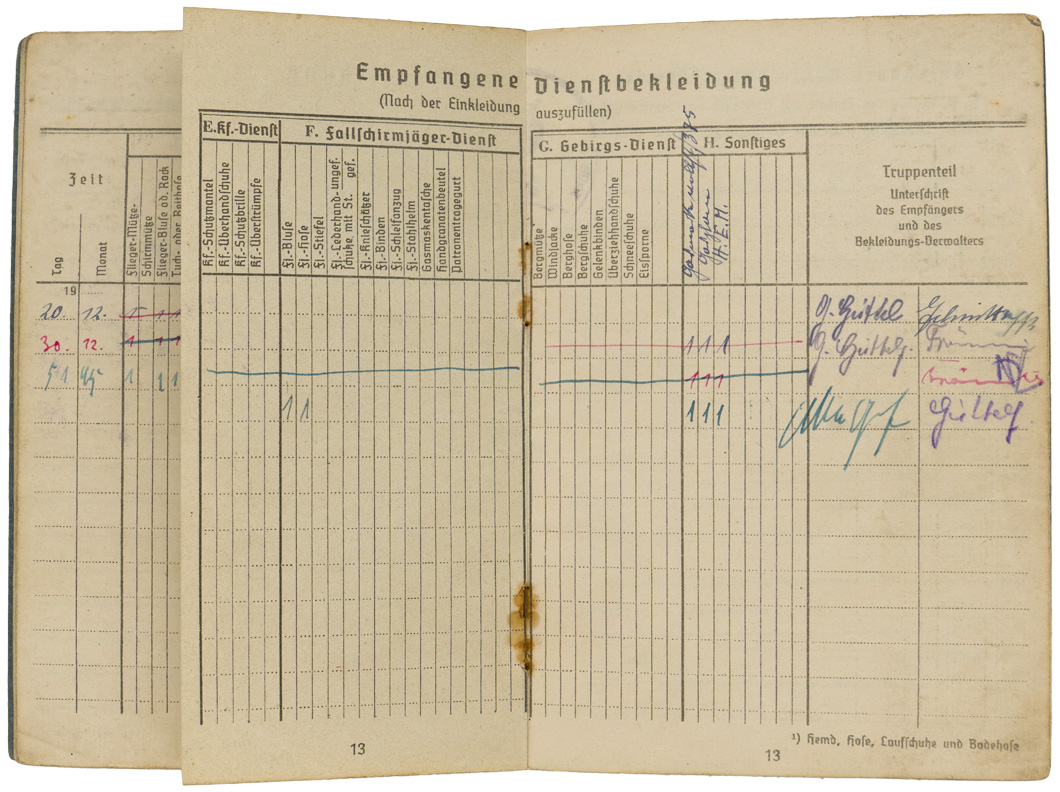 Empfangene Dienstbekleidung
(Nach der Einkleidung auszufüllen)
Zeit
Tag
Monat
Flieger-Mütze-
Schirmmütze
Flieger-Bluse od. Rock
Tuch- oder Reithose
E. Kf.-Dienst
Kf.-Schutzmantel
Kf.-Überhandschuhe
Kf.-Schutzbrille
Kf.-Überstrümpfe
F. Fallschirmjäger-Dienst
Fl.-Bluse
Fl.-Hose
Fl.-Stiefel
Fl.-Lederhand- ungef.
schuhe mit St. gef.
Fl.-Knieschützer
Fl.-Binden
Fl.-Schleifanzug
Fl.-Stahlhelm
Gasmaskentasche
Handgranatenbeutel
Patronentragegurt
G. Gebirgs-Dienst
Bergmütze
Windjacke
Berghose
Bergschuhe
Gelenkbinden
Überziehhandschuhe
Schneeschuhe
Eissporne
H. Sonstiges
H.E.M.
Truppenteil
Unterschrift
des Empfängers
und des
Bekleidungs-Verwalters
19
20. 12. 1 1 1 G. Güttel
30. 12. 1 1 1 1 1 1 G. Güttel
5 1 45 1 1 1 1 1 1
1 1 1 1 1 Güttel
13
13
¹) Hemd, Hose, Laufschuhe und Badehose